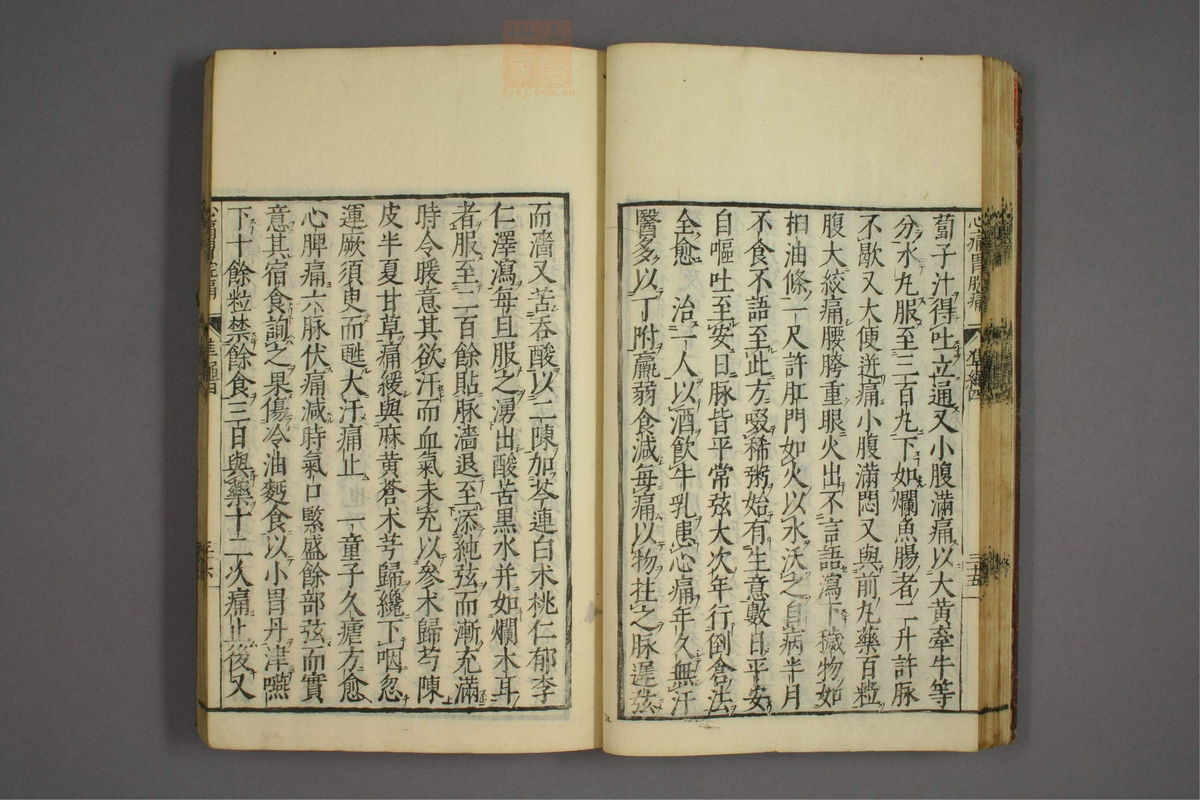 心痛胃脘痛
三十五
蔔子汁得吐立通又小腹滿痛以大黃牽牛等
分水丸服至三百丸下如爛魚腸者二升許脉
不歇又大便迸痛小腹滿悶又與前丸藥百粒
腹大絞痛腰胯重眼火出不言語瀉下穢物如
桕油條一尺許肛門如火以水沃之自病半月
不食不語至此方啜稀粥始有生意數日平安
自嘔吐至安日脉皆平常弦大次年行倒倉法
全愈　治一人以酒飲牛乳患心痛年久無汗
醫多以丁附羸弱食減每痛以物拄之脉遲弦
而濇又苦吞酸以二陳加芩連白术桃仁郁李
仁澤瀉每旦服之湧出酸苦黑水并如爛木耳
者服至二百餘貼脉濇退至添純弦而漸充滿
時令暖意其欲汗而血氣未充以參术歸芍陳
皮半夏甘草痛緩與麻黃蒼术芎歸纔下咽忽
運厥須臾而甦大汗痛止　一童子久瘧方愈
心脾痛六脉伏痛減時氣口緊盛餘部弦而實
意其宿食詢之果傷冷油麵食以小胃丹津嚥
下十餘粒禁餘食三日與藥十二次痛止後又